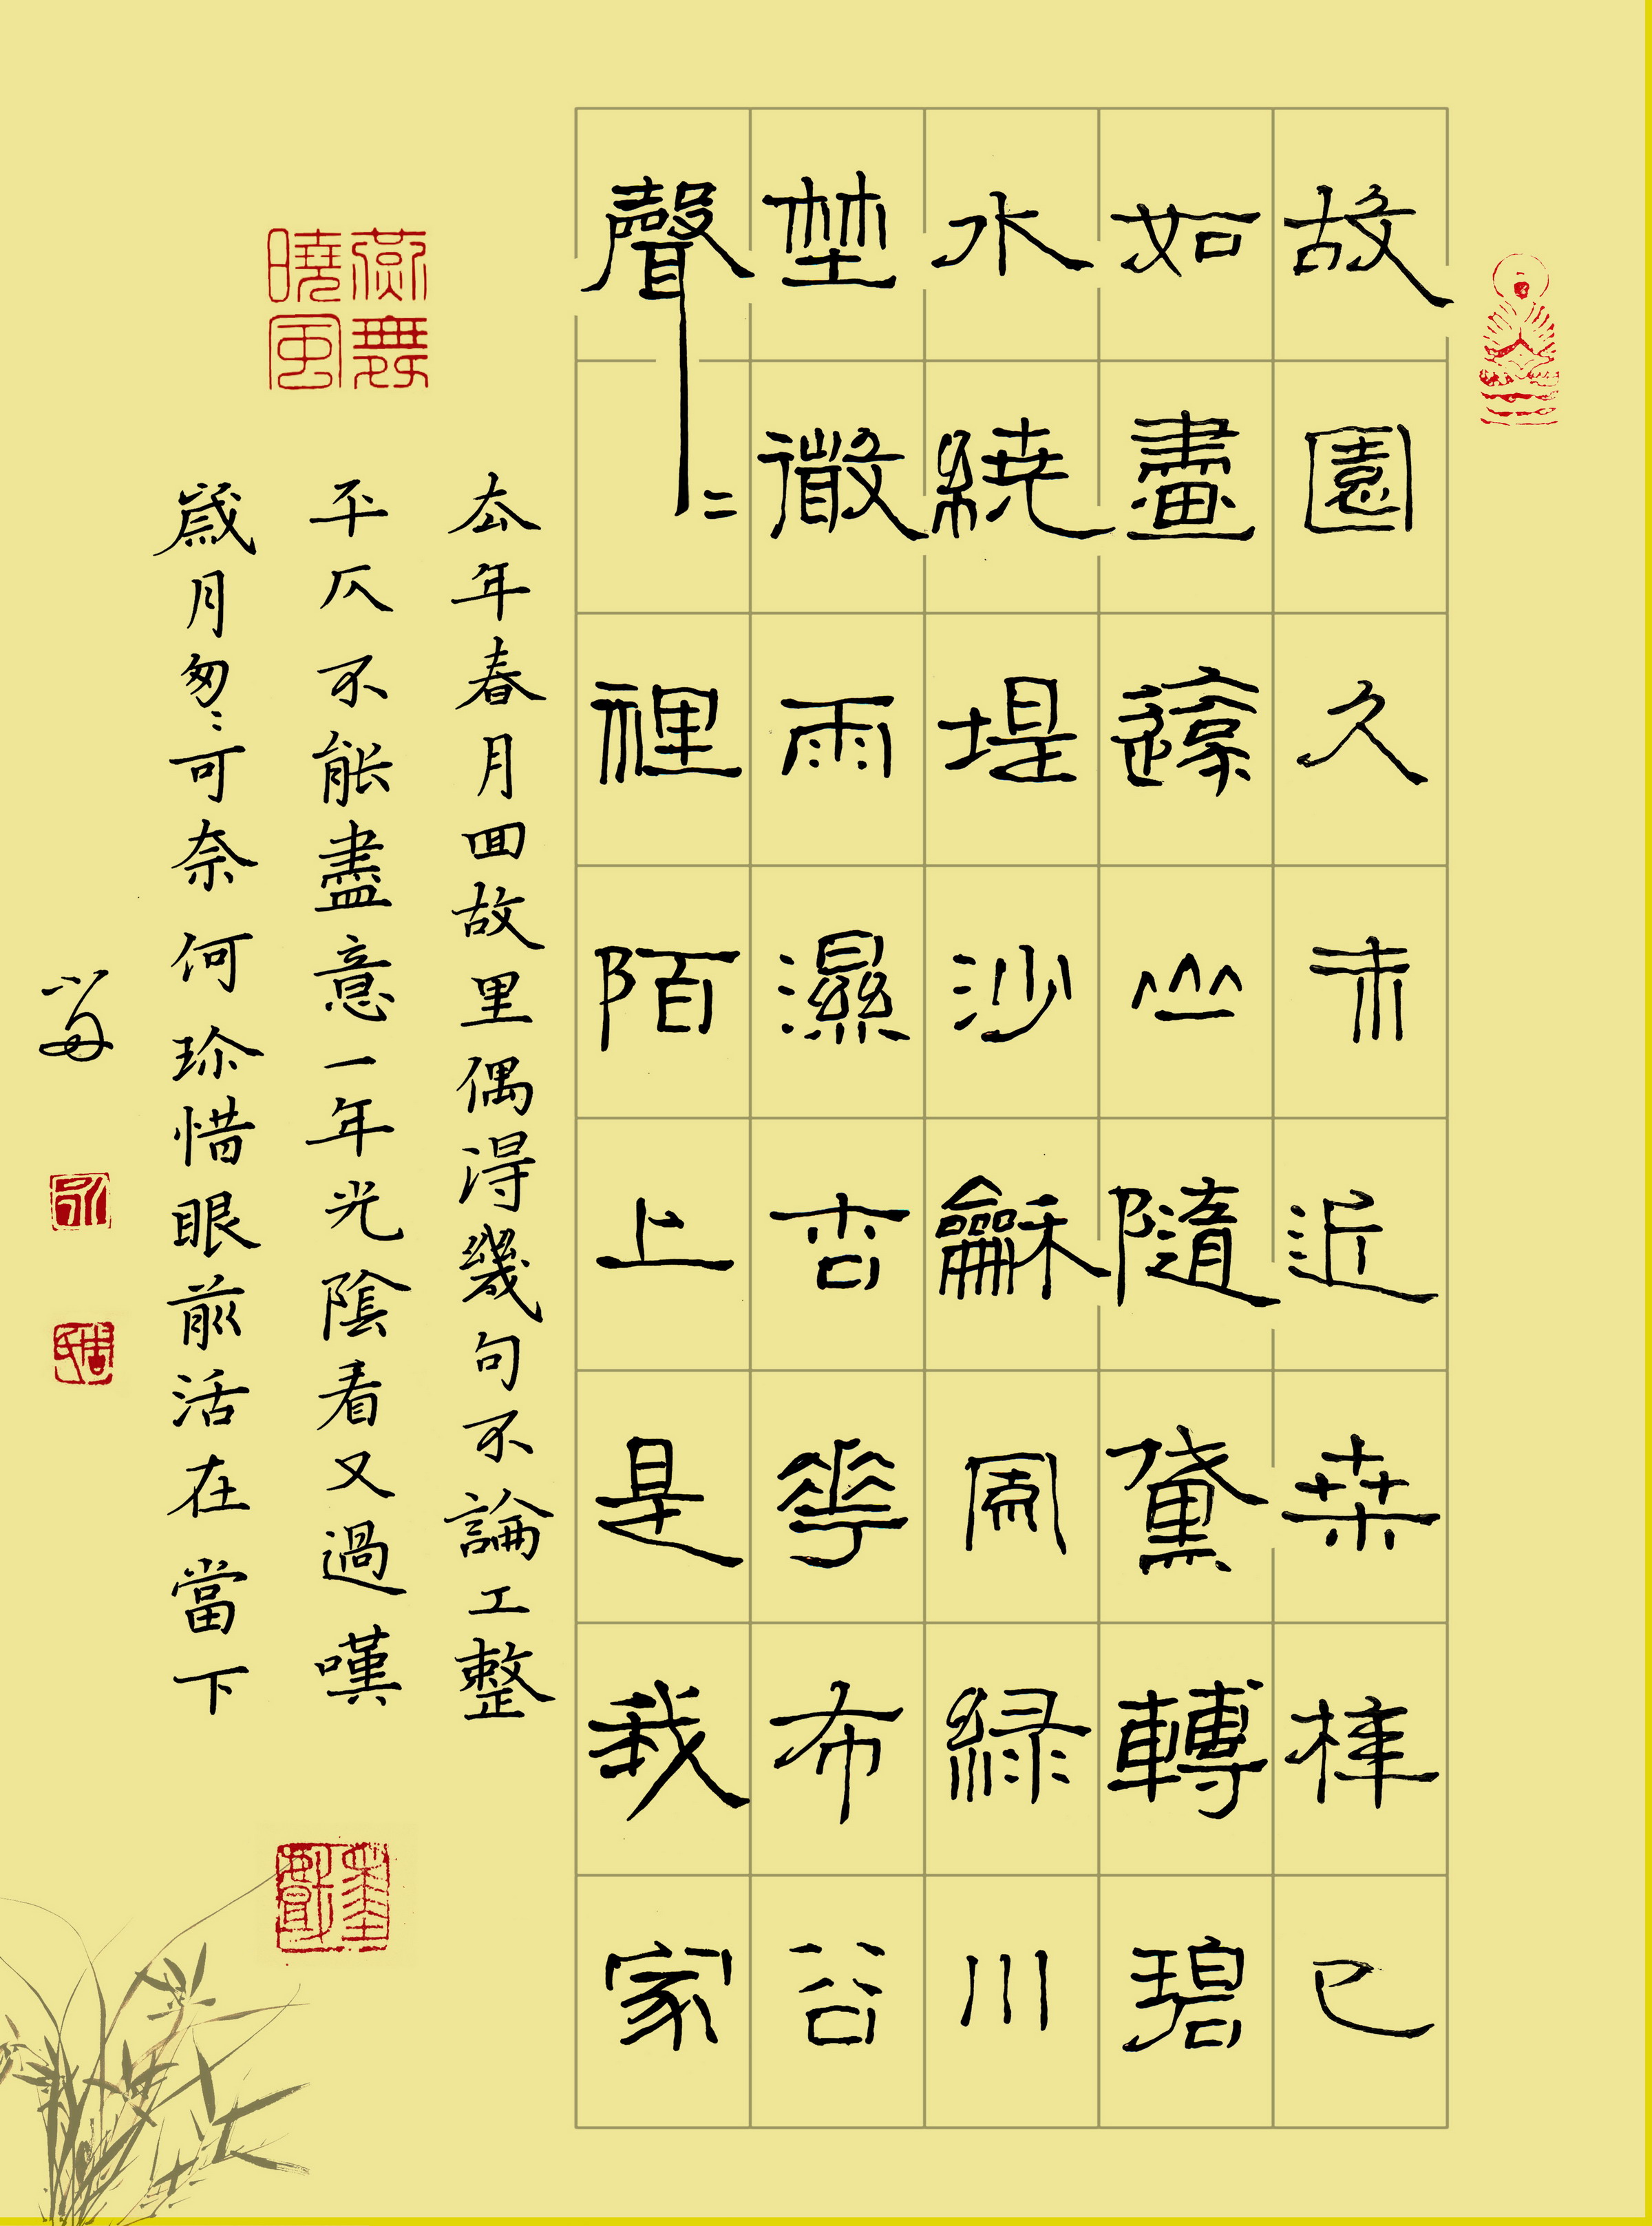 故園久未近桒梓已
如畫遠山隨黛轉碧
水繞堤沙龢周綠川
埜微雨濕杏華布谷
聲二裡陌上是我家
去年春月回故里偶得幾句不論工整
平仄不能盡意一年光陰看又過嘆
歲月匆〻可奈何珍惜眼前活在當下
燕舞曉風